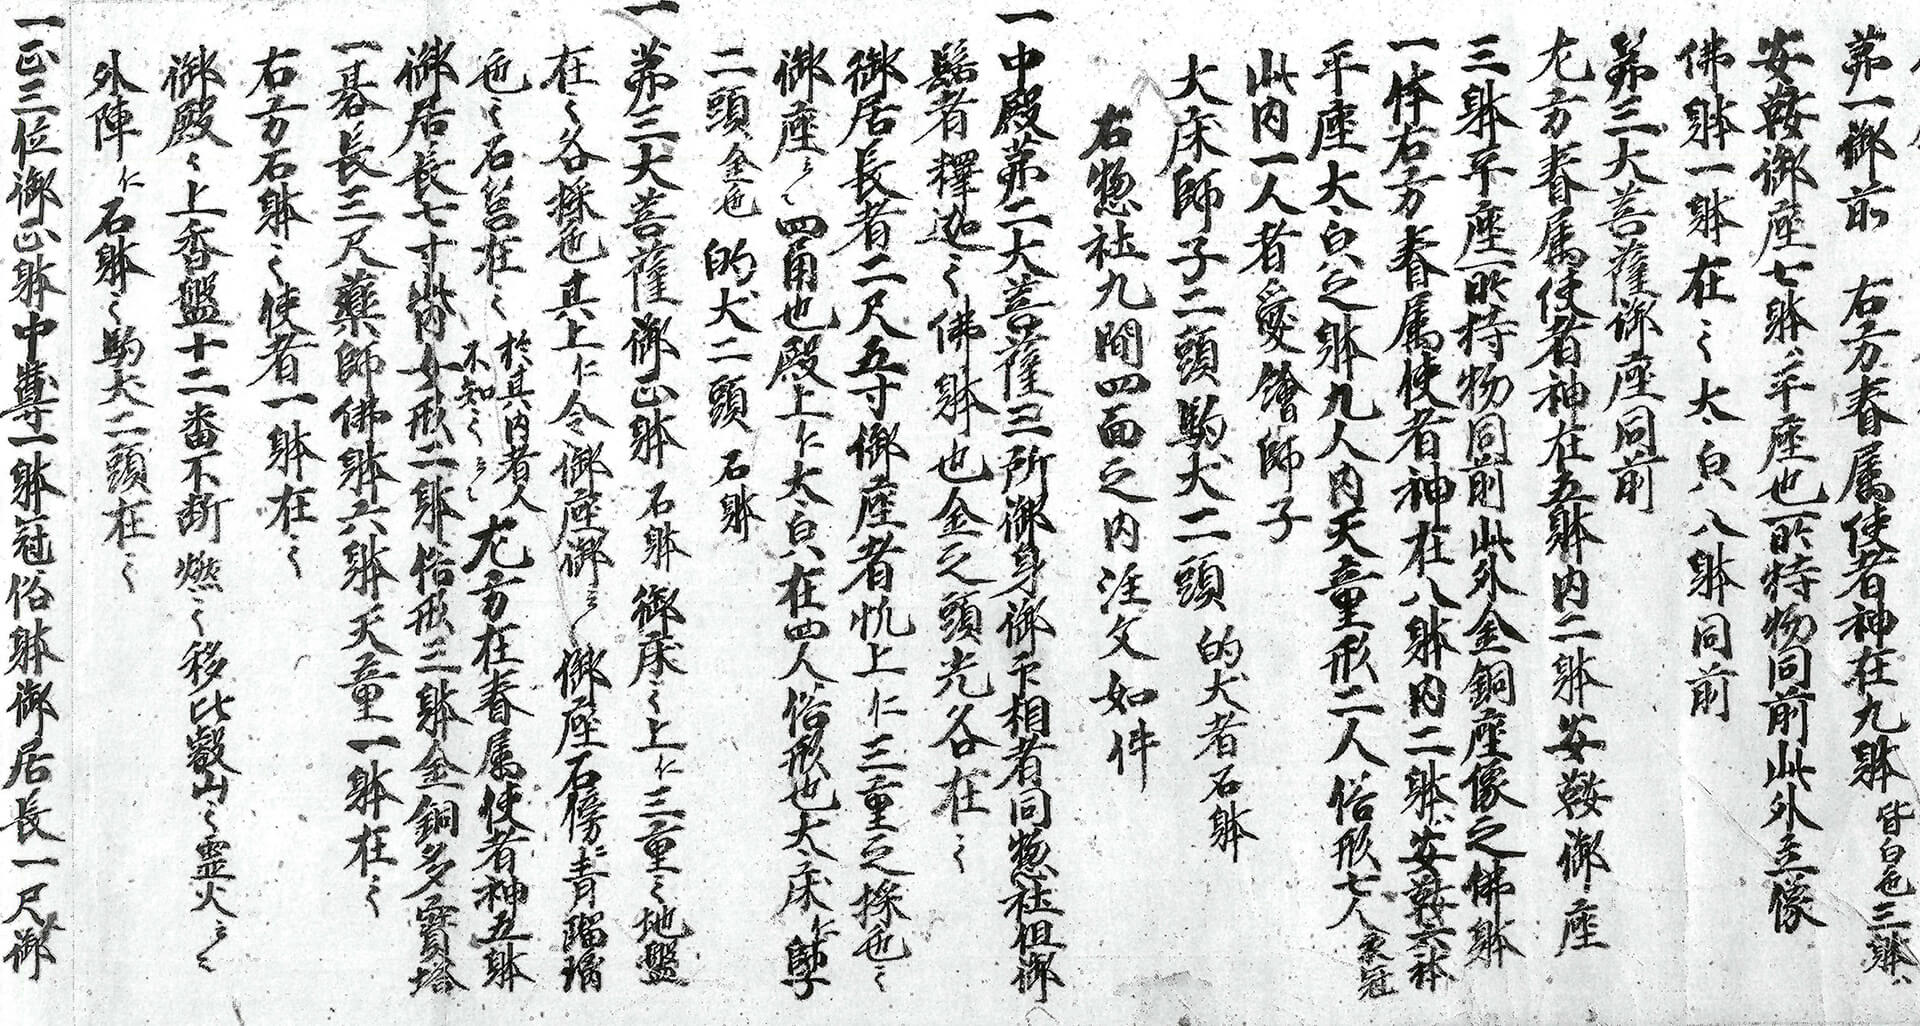 第一御前　右方眷属使者神在九躰皆白也三躰ハ
安鞍御座七躰ハ平座也所持物同前此外立像
佛躰一躰在之大㒵八躰同前
第三大菩薩御座同前
尤方眷属使者神在五躰内二躰安鞍御座
三躰平座所持物同前此外金銅座像之佛躰
一体右方眷属使者神在八躰内二躰ハ安鞍六躰
平座大㒵之躰九人内天童形二人俗形七人衣冠
此内一人者愛鱠師子
大床師子二頭駒犬二頭　的犬者石躰
右惣社九間四面之内注文如件
一中殿第二大菩薩三所御身御下相者同惣社但御
髻者釋迦之佛躰也金之頭光各在之
御居長者二尺五寸御座者机上仁三重之採也云
御座云四角也殿上仁大㒵在四人俗形也大床仁師子
二頭金也　的犬二頭石躰
一第三大菩薩御正躰　石躰　御床之上仁三重之地盤
在之各採也其上仁令御座御云　御座石傍仁青瑠璃
也之石筥在之　於其内者人
不知之云　尤方在眷属使者神五躰
御居長七寸此内女形二躰俗形三躰金銅多寳塔
一基長三尺藥師佛躰六躰天童一躰在之
右方石躰之使者一躰在之
御殿之上香盤十二番不断燃之移比叡山之霊火云々
外陣仁石躰之駒犬二頭在之
一正三位御正躰中尊一躰冠俗躰御居長一尺御